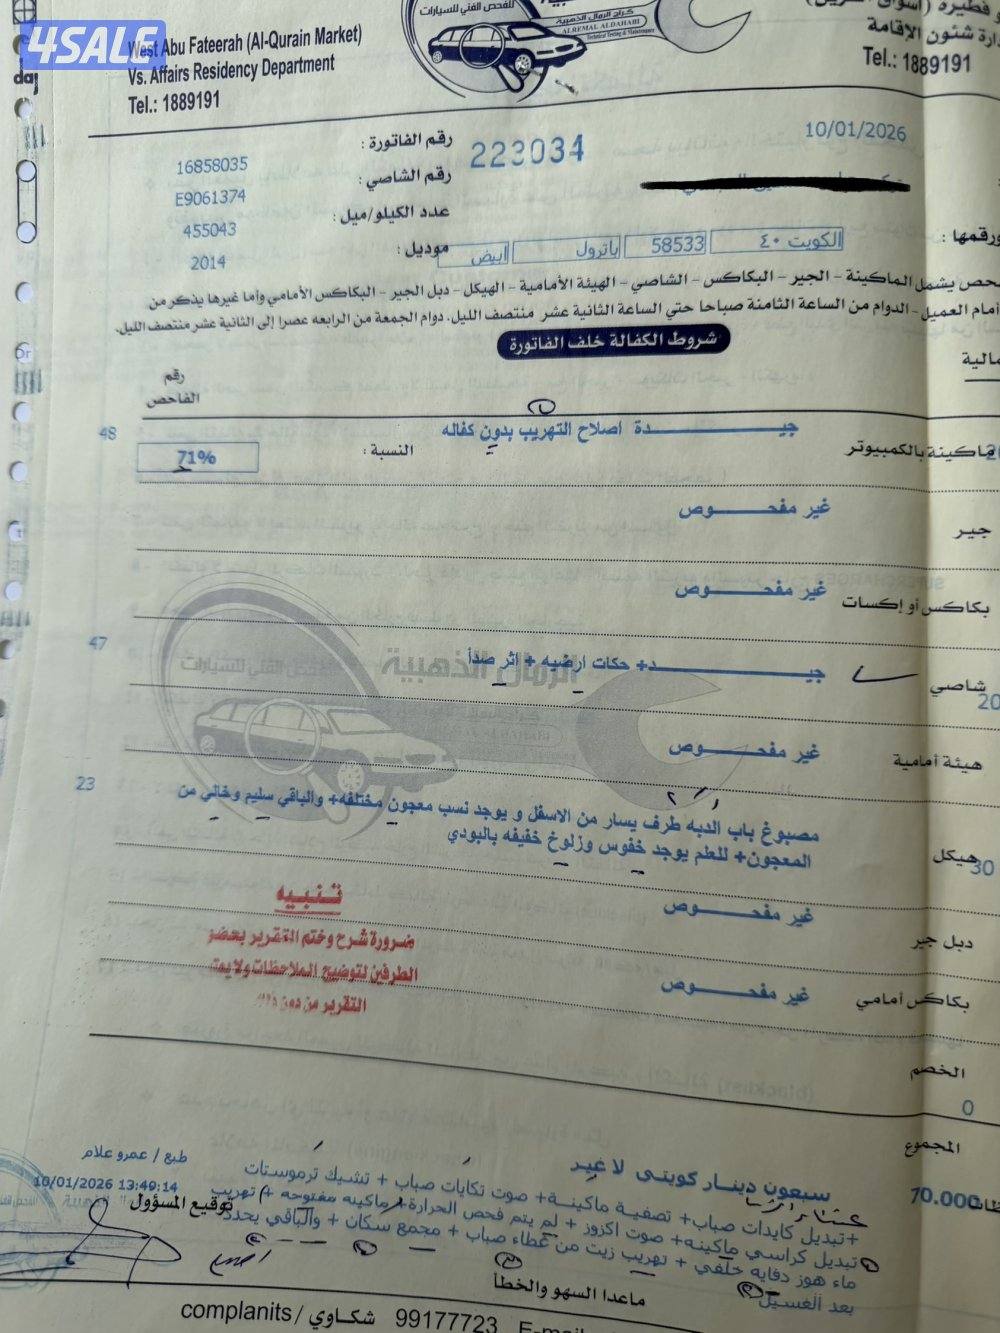 4SALE
West Abu Fateerah (Al-Qurain Market)
Vs. Affairs Residency Department
Tel.: 1889191
للفحص الفني للسيارات
كراج الرمال الذهبية
ALREMAL ALDAHABI
Technical Testing & Maintenance
دارة شئون الإقامة
Tel.: 1889191
10/01/2026
223034
رقم الفاتورة : 16858035
رقم الشاصي : E9061374
عدد الكيلو/ميل : 455043
موديل : 2014
ورقمها : الكويت ٤٠ 58533 باترول ابيض
حص يشمل الماكينة - الجير - البكاكس - الشاصي - الهيئة الأمامية - الهيكل - دبل الجير - البكاكس الأمامي وأما غيرها يذكر من
أمام العميل - الدوام من الساعة الثامنة صباحا حتي الساعة الثانية عشر منتصف الليل. دوام الجمعة من الرابعه عصرا إلى الثانية عشر منتصف الليل.
شروط الكفالة خلف الفاتورة
رقم
الفاحص
ماكينة بالكمبيوتر جيــــدة اصلاح التهريب بدون كفاله 48
النسبة : 71%
جير غير مفحــــوص
بكاكس أو إكسات غير مفحــــوص
شاصي جيــــد+ حكات ارضيه + اثر صدأ 47
20
هيئة أمامية غير مفحــــوص
هيكل مصبوغ باب الدبه طرف يسار من الاسفل و يوجد نسب معجون مختلفه+ والباقي سليم وخالي من 23
30 المعجون+ للعلم يوجد خفوس وزلوخ خفيفه بالبودي
دبل جير غير مفحــــوص
بكاكس أمامي غير مفحــــوص
تنبيه
ضرورة شرح وختم التقرير بحضو
الطرفين لتوضيح الملاحظات ولا يعت
التقرير من دون ذلك
الخصم
0
المجموع
70.000 سبعون دينار كويتى لا غير
طبع / عمرو علام
10/01/2026 13:49:14
توقيع المسؤول
+تبديل كايدات صباب+ تصفية ماكينة+ صوت تكايات صباب + تشيك ترموستات
+تبديل كراسي ماكينه+ صوت اكزوز + لم يتم فحص الحرارة/ ماكينه مفتوحه + تهريب
ماء هوز دفايه خلفي + تهريب زيت من غطاء صباب + مجمع سكان + والباقي يحدد
بعد الغسيل
ماعدا السهو والخطأ
complanits / شكاوي 99177723